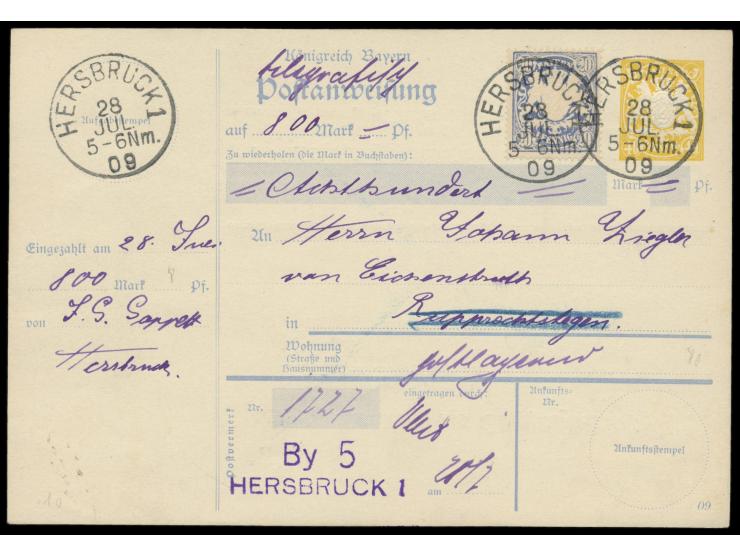 HERSBRUCK 1
28
JUL.
5-6Nm.
09
Aufgabestempel
Eingezahlt am 28. Juli
800 Mark Pf.
von J. G.
Hersbruck.
Königreich Bayern
telegrafisch
Postanweisung
auf 800 Mark — Pf.
Zu wiederholen (die Mark in Buchstaben):
= Achthundert = Mark = Pf.
An Herrn Johann Ziegler
von
in Rupprechtstegen.
Wohnung
(Straße und
Hausnummer)
postlagernd
HERSBRUCK 1
28
JUL.
5-6Nm.
09
HERSBRUCK 1
28
JUL.
5-6Nm.
09
Postvermerk
Nr. 1727
eingetragen durch:
am
By 5
HERSBRUCK 1
Ankunfts-
Nr.
Ankunftsstempel
09